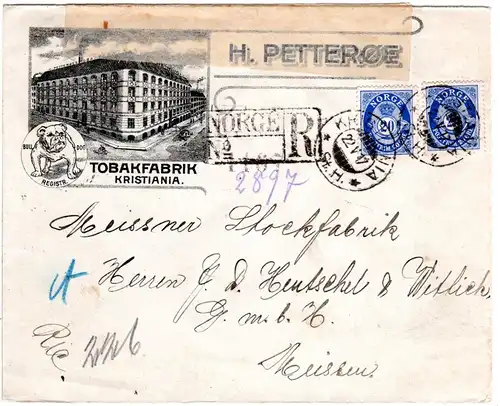 H. PETTERØE
BULL DOG
REGISTR.
TOBAKFABRIK
KRISTIANIA.
NORGE
R
2897
NORGE
20
NORGE
KRISTIANIA
Meissner Stockfabrik
Herren J. D. Hentschel & Wittlich,
G. m. b. H.
Meissen.